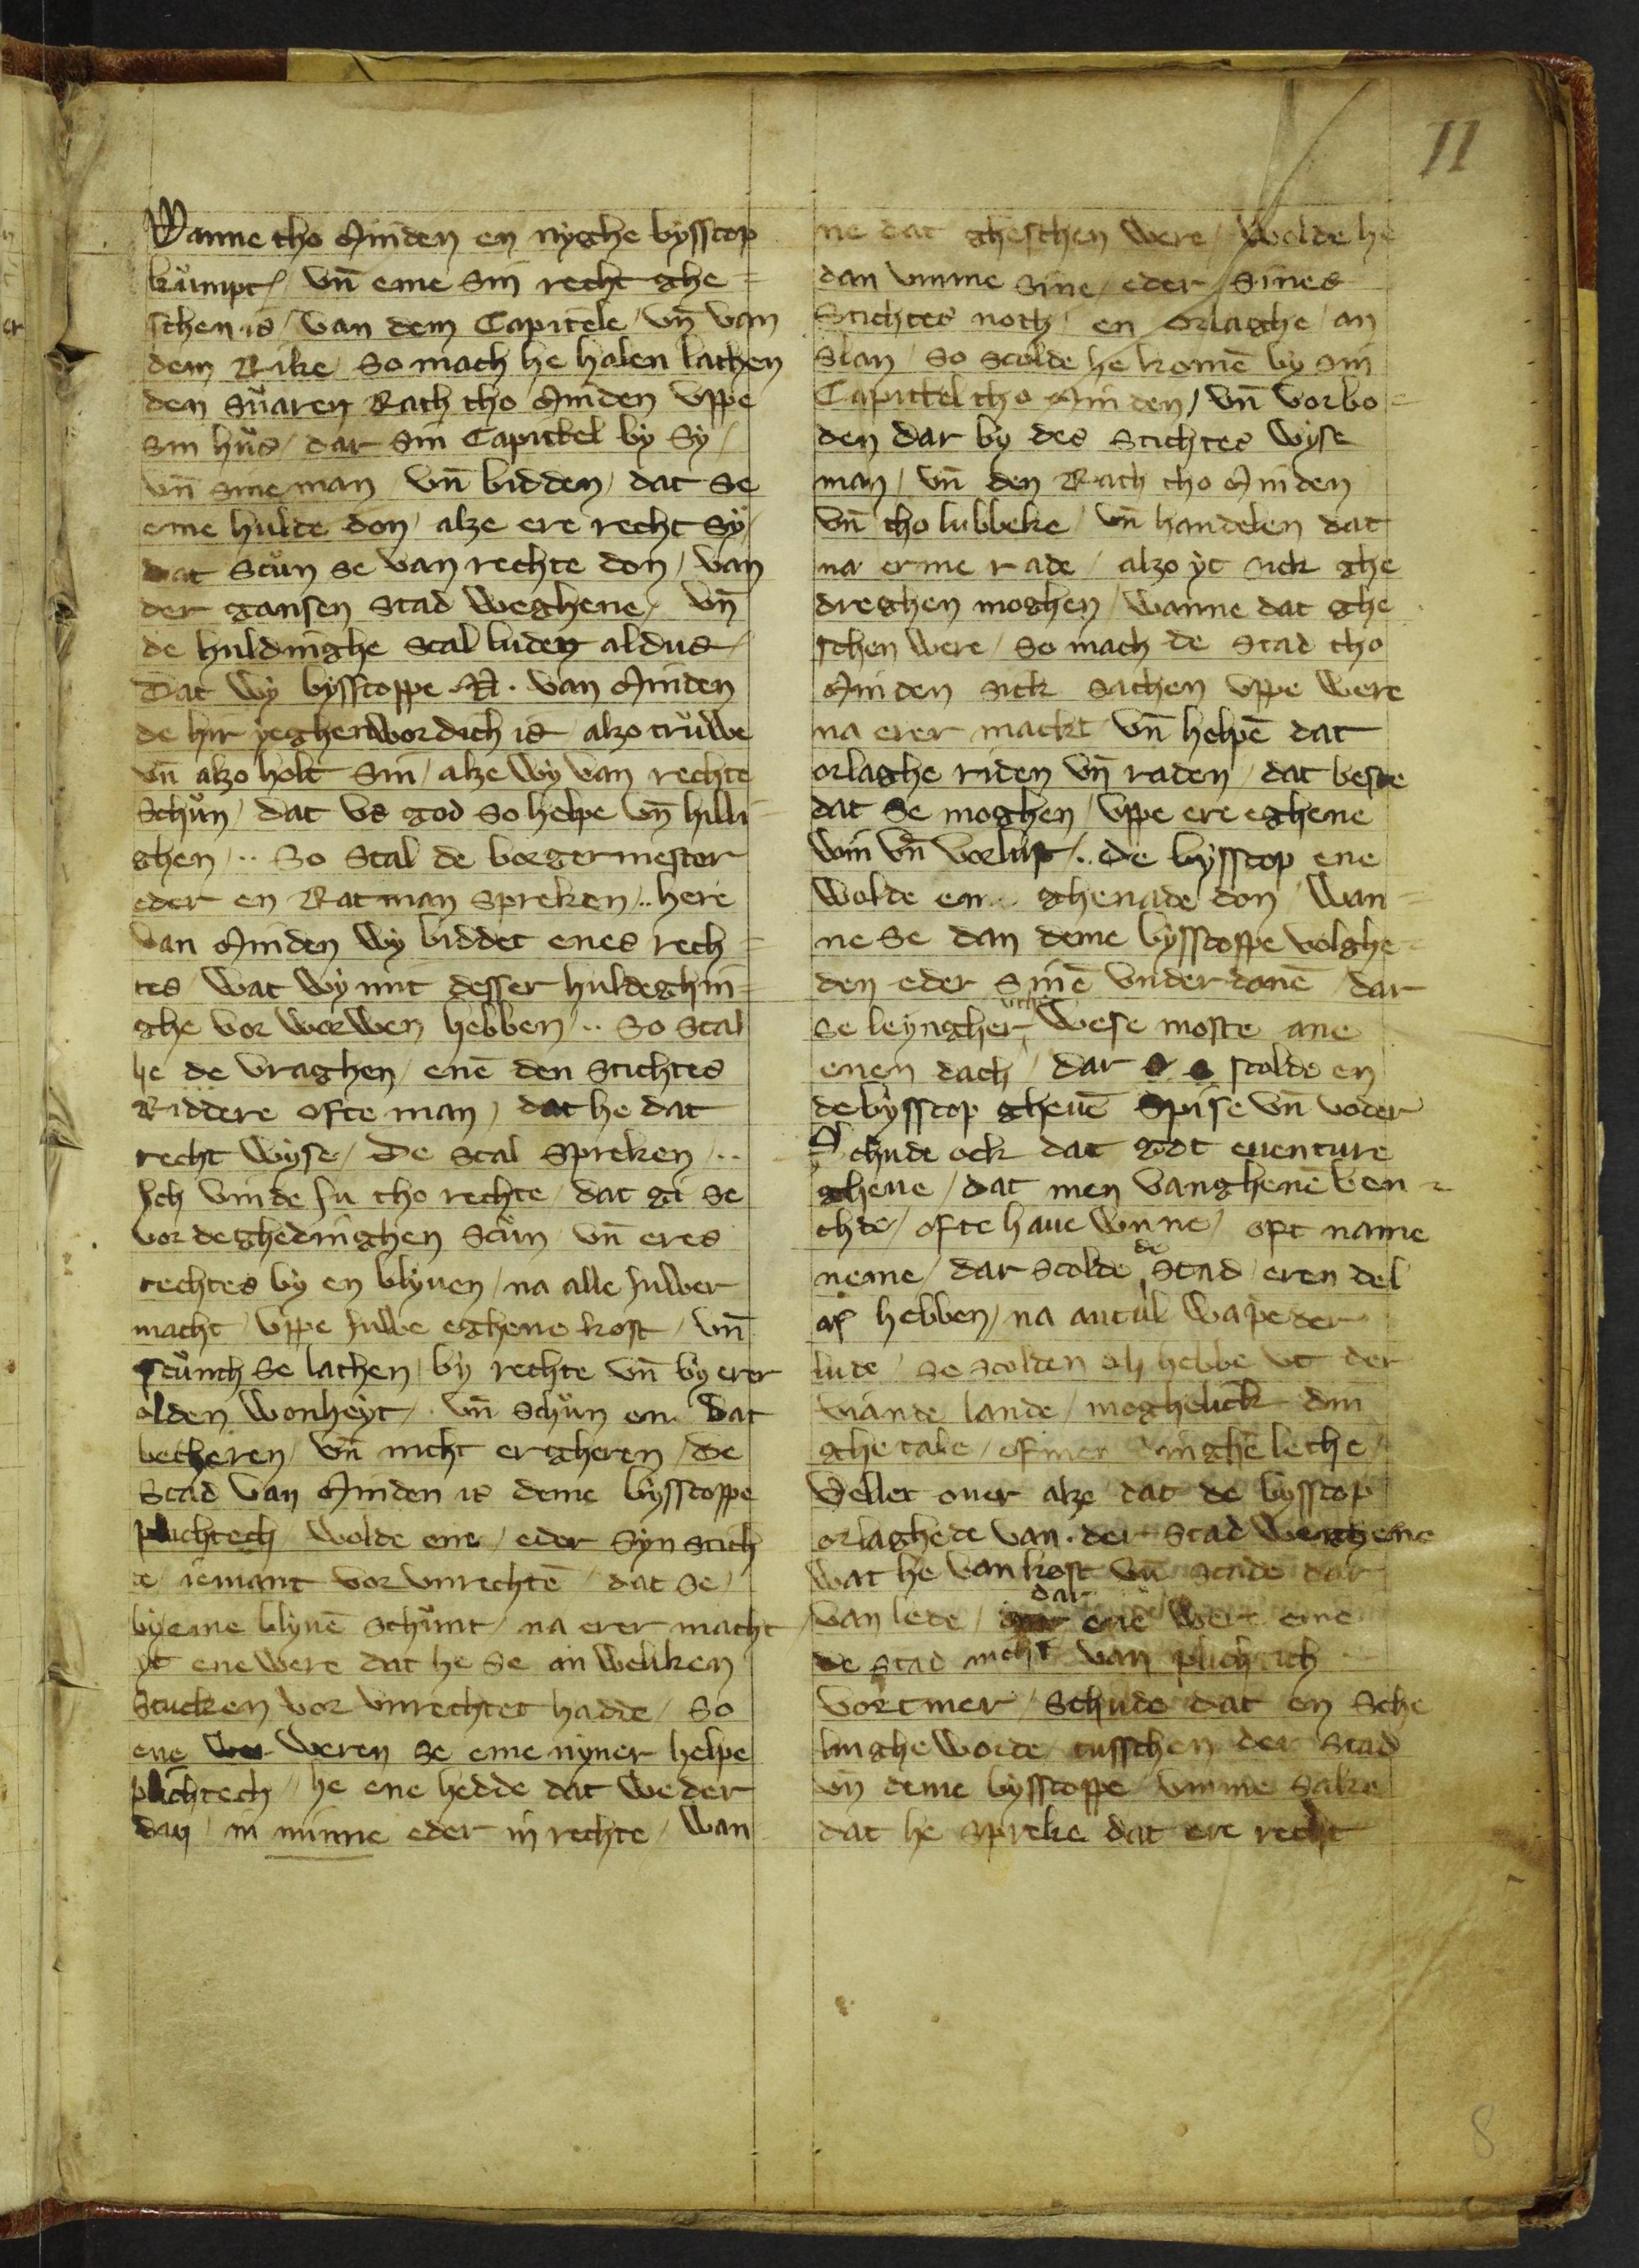 11
Wanne tho Minden en nyghe bysscop
kůmpt / vn̄ eme sin recht ghe=
schen is / van dem Capitele / vn̄ van
dem Rike / so mach he halen lathen
den sůaren Rath tho Minden vppe
sin hůs / dar sin Capittel by sy /
vn̄ sine man / vn̄ bidden / dat se
eme hulde don / alze ere recht sy /
dat scůn se van rechte don / van
der gansen stad weghene / vn̄
de huldinghe scal luden aldus /
Dat wy bysscoppe .N. van Minden
de hir yeghenwordich is / alzo trůwe
vn̄ alzo holt sin / alze wy van rechte
schůn / dat vs god so helpe vn̄ hilli=
ghen / .. So scal de borgermester
eder en Ratman spreken / .. here
van Minden wy biddet enes rech=
tes / wat wy mit desser huldeghin=
ghe vor worwen hebben / .. So scal
he de vraghen / enē den stichtes
Riddere ofte man / dat he dat
recht wyse / De scal spreken / ..
Ich vinde Ju tho rechte / dat gi se
vor deghedinghen scůn / vn̄ eres
rechtes by en blyuen / na alle Juwer
macht / vppe Juwe eghene kost / vn̄
scůnth se lathen / by rechte vn̄ by erer
olden wonheyt / vn̄ schůn em dat
betheren / vn̄ nicht ergheren / De
Stad van Minden is deme bysscoppe
plichtech / wolde eme / eder syn stich
te / iemant vor vnrechtē / dat se /
by eme blyuē schůnt / na erer macht /
yt ene were dat he se an welken
stucken vor vnrechtet hadde / so
ene weren se eme nyner helpe
plichtech / he ene hedde dat weder
dan / in minne eder in rechte / wan
ne dat gheschen were / wolde he
dan vmme sine / eder sines
Stichtes noth / en orlaghe / an
slan / so scolde he komē by sin
Capittel tho Minden / vn̄ vorbo=
den dar by des stichtes wyse
man / vn̄ den Rath tho Minden
vn̄ tho lubbeke / vn̄ handelen dat
na erme rade / alzo yt sick ghe
dreghen moghen / wanne dat ghe
schen were / so mach de stad tho
Minden sick sathen vppe were
na erer mackt vn̄ helpē dat
orlaghe riden vn̄ raden / dat beste
dat se moghen / vppe ere eghene
win vn̄ vorlust / .. De bysscop ene
wolde em ghenade don / wan=
ne se dan deme bysscoppe volghe=
den eder sinē vnderdonē / dar
se leyngher vthe wese moste ane
enen dach / dar scolde en
de bysscop gheuē spise vn̄ voder
Schude ock dat got euenture
gheue / dat men vanghenē ven=
chde / ofte haue wnne / oft name
neme / dar scolde de stad eren del
af hebben / na antal wape der
lude / se scolden oh hebbe vt der
viande lande / moghelick din
ghetale / ofmen dinghē lethe /
Vellet ouer alze dat de bysscop
orlaghede van der stad weghene
wat he van kost vn̄ scade dar
van lede / dar ene wert eme
de stad nicht van plichtich
Vortmer / schude dat en sche
linghe worde / tusschen der stad
vn̄ deme bysscoppe / vmme sake
dat he spreke dat ere recht
8